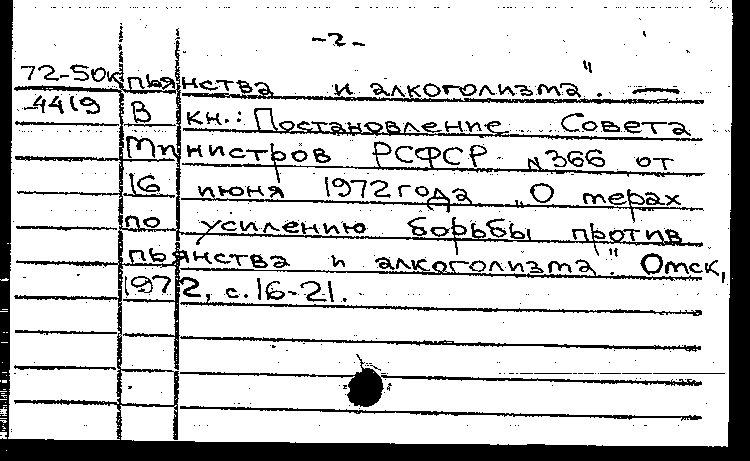 -2-
72-50к пьянства и алкоголизма". —
4419 В кн.: Постановление Совета
Министров РСФСР №366 от
16 июня 1972 года „О мерах
по усилению борьбы против
пьянства и алкоголизма". Омск,
1972, с. 16-21.